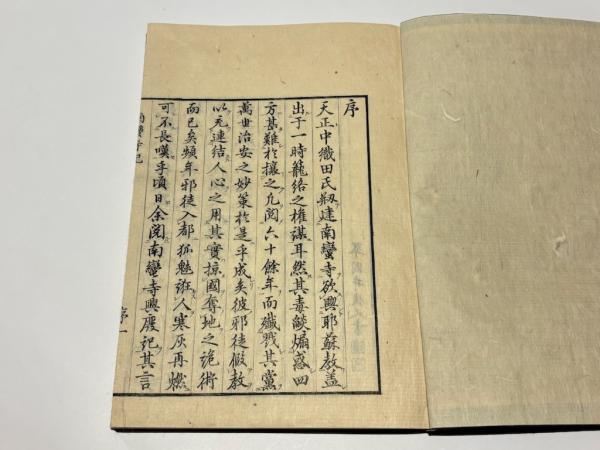 序
天正中織田氏剏建南蠻寺欲興耶蘇教蓋
出于一時籠絡之権謀耳然其毒燄煽惑四
方甚難於攘之凡閲六十餘年而殱戮其黨
萬世治安之妙策於是乎成矣彼邪徒假教
以充連結人心之用其實掠國奪地之詭術
而已矣頻年邪徒入都狐魅誑人寒灰再燃
可不長嘆乎頃日余閲南蠻寺興廢記其言
序一